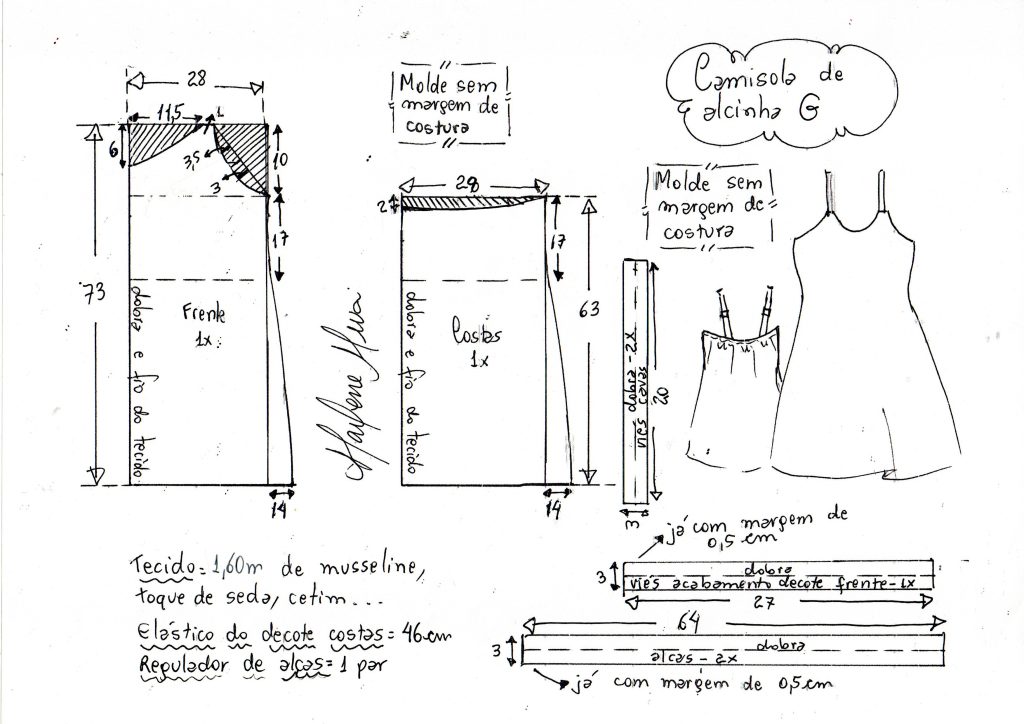 Camisola de
alcinha G
Molde sem
margem de
costura
28
11,5
1
6
3,5
3
10
17
73
Frente
1x
dobra e fio do tecido
14
Marlene Mukai
28
2
17
63
Costas
1x
dobra e fio do tecido
14
Molde sem
margem de
costura
dobra - 2x
viés cavas
20
3
Tecido = 1,60m de musseline,
toque de seda, cetim...
Elástico do decote costas = 46cm
Regulador de alças = 1 par
já com margem de
0,5 cm
3
dobra
viés acabamento decote frente - 1x
27
64
3
dobra
alças - 2x
já com margem de 0,5cm